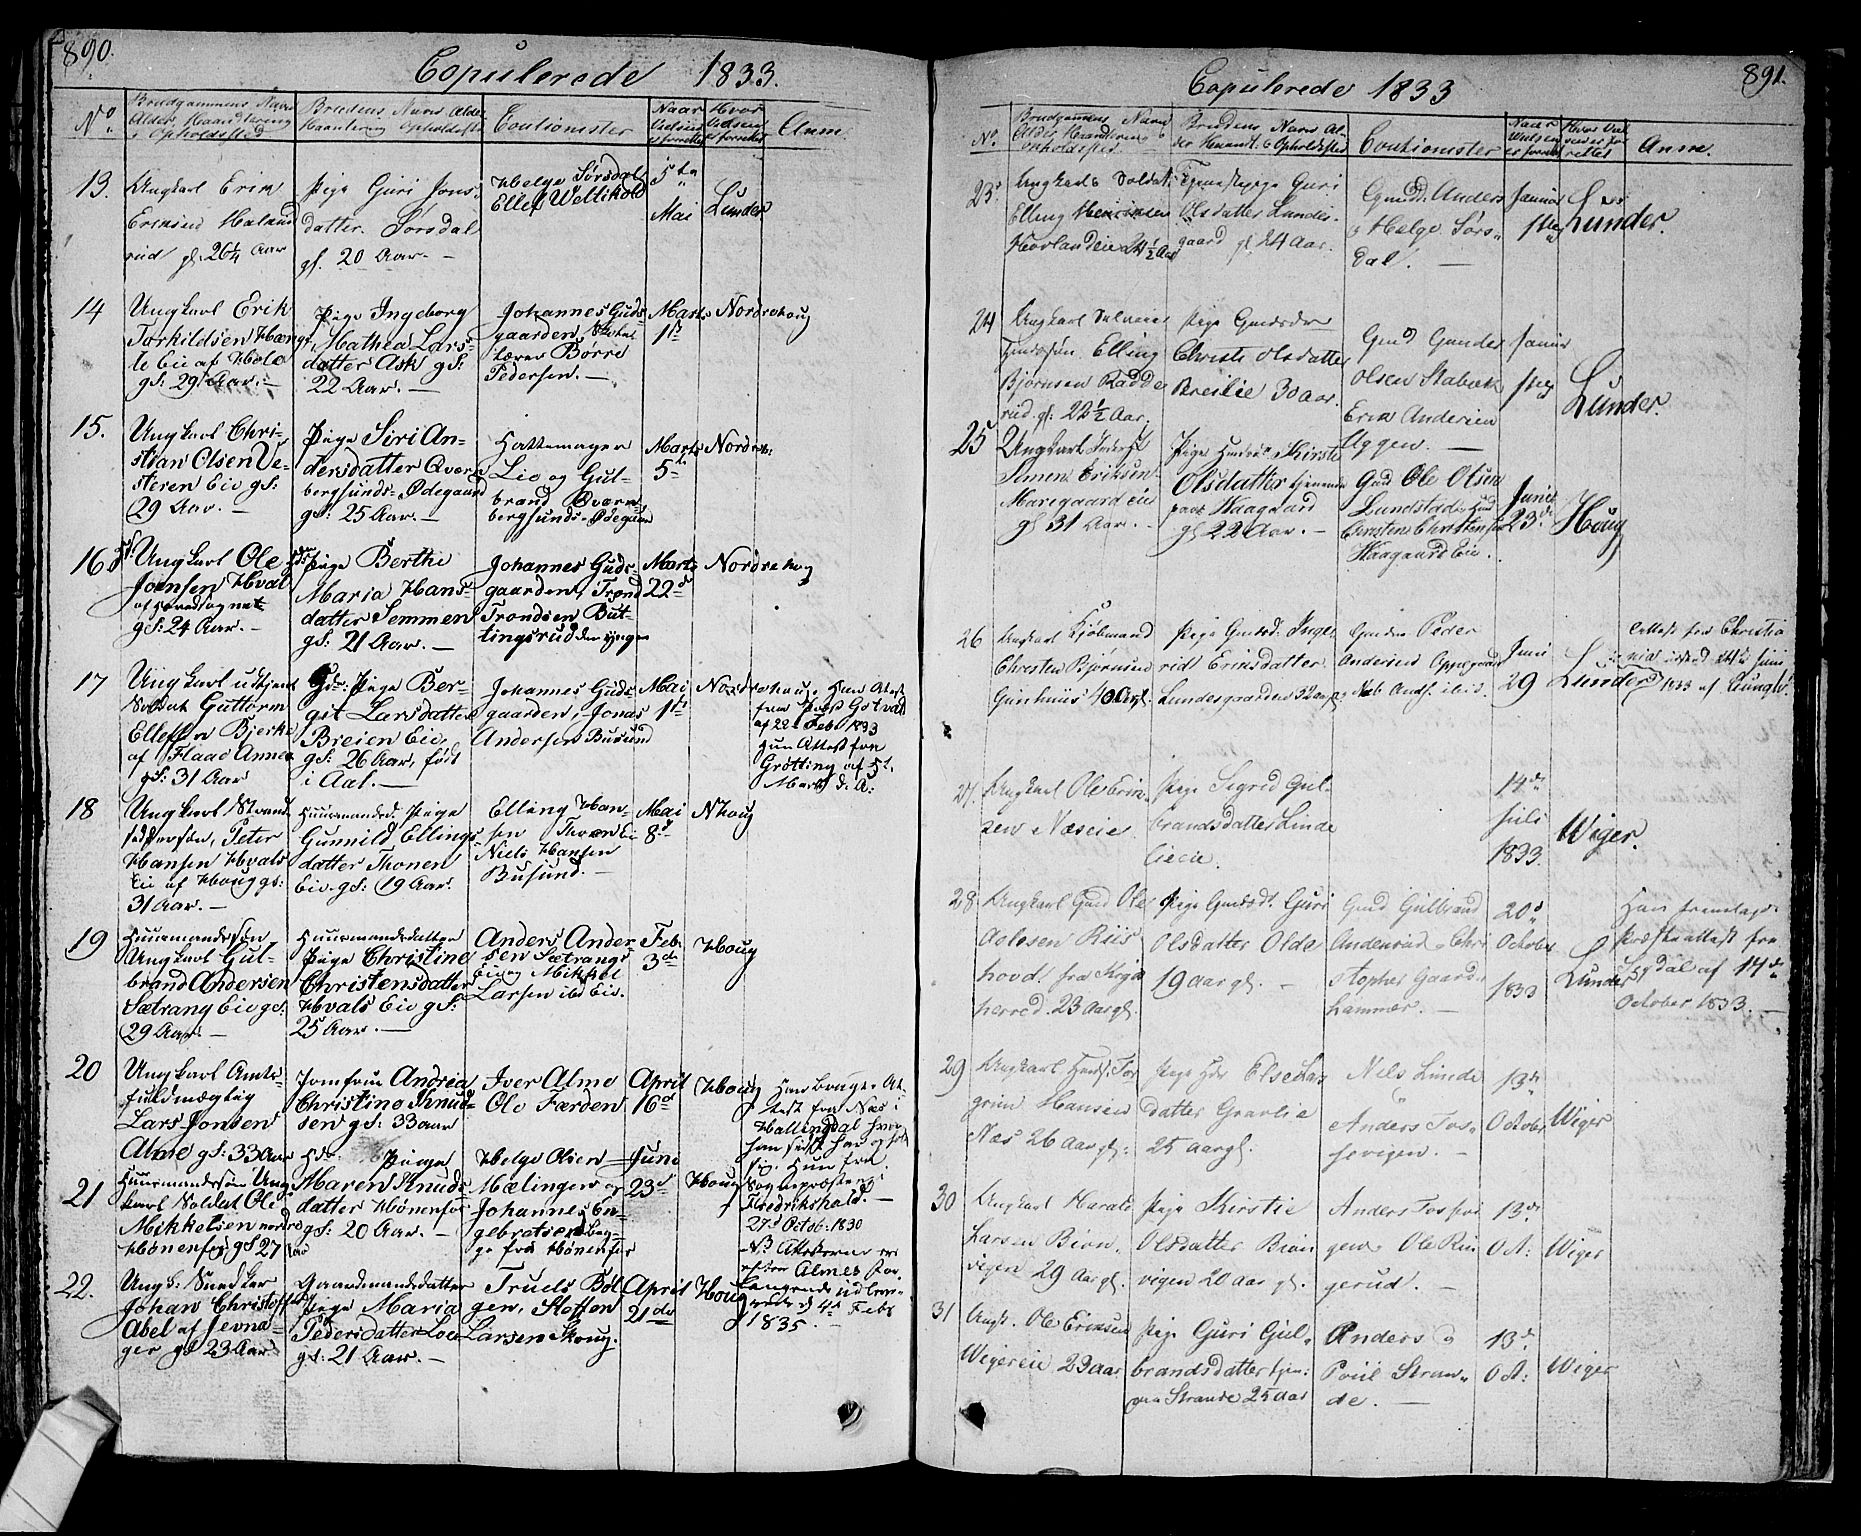 890.
Copulerede 1833.
No.
Brudgommens Navn
Alder, Haandtering
& Opholdsted
Brudens Navn Alder
Haantering Opholdsted
Coutionister
Naar
Vielsen
er forrettet
Hvor
Vielsen
er forrettet
Anm
13.
Ungkarl Erik
Eriksen Haland
rud gl. 26¼ Aar
Pige Guri Jons
datter Sørsdal
gl. 20 Aar. —
Helge Sørsdal
Ellef Wellikold
5te
Mai
Lunder
14
Ungkarl Erik
Torkildsen Hæng
te Eie af Hole
gl: 29 Aar. —
Pige Ingeborg
Mathea Lars
datter Ask gl:
22 Aar. —
Johannes Guds
gaarden, Skole
lærer Børre
Pedersen. —
Marts
1ste
Nordrehoug
15.
Ungkarl Chri-
stian Olsen Ve-
steren Eie gl:
29 Aar. —
Pige Siri An-
dersdatter Qværn
bergsunds-Ødegaard
gl: 25 Aar. —
Hattemager
Lie og Gul-
brand Qværn-
bergsunds-Ødegaar
Marts
5te
Nordreh:
16
Ungkarl Ole
Joensen Hval
af Hovedsognet
gl: 24 Aar. —
Pige Berthe
Maria Hans-
datter Semmen
gl: 21 Aar. —
Johannes Guds-
gaarden, Trond
Trondsen But-
tingsrud den yngre
Marts
22de
Nordrehoug
17
Ungkarl udtjent
Soldat Guttorm
Ellefsen Bjerke
af Flaae Annex
gl: 31 Aar
Gdr: Pige Ber-
git Larsdatter
Breien Eie,
gl: 26 Aar, født
i Aal. —
Johannes Guds
gaarden, Jonas
Andersen Busund
Mai
1ste
Nordrehoug
Han Attest
fra Præst Gotvad
af 22 Feb. 1833
hun Attest fra
Grøtting af 5te
Marts d. A:
18
Ungkarl Strand
siddersøn, Peter
Hansen Hvals
Eie af Houg gl:
31 Aar. —
Huusmandsd. Pige
Gunnild Ellings
datter Thonen
Eie gl: 19 Aar.
Elling Han-
sen Thoræn Ei
Niels Hansen
Busund. —
Mai
8de
NHoug
19
Huusmandssøn
Ungkarl Gul-
brand Andersen
Sætrang Eie gl:
29 Aar. —
Huusmandsdatter
Pige Christine
Christensdatter
Hvals Eie gl:
25 Aar. —
Anders Ander
sen Sætrangs
Eie og Mikkel
Larsen ibd Eie.
Feb:
3de
Houg
20
Ungkarl Amts-
fuldmægtig
Lars Jonsen
Alme gl: 33 Aar
Jomfru Andrea
Christine Knud-
sen gl: 33 aar
Iver Alme
Ole Færden
April
16de
Houg
Han bragte At
test fra Næs i
Hallingdal hvor
han sidst har opholdt
sig. Hun fra
Sognepræsten i
Fredrikshald. —
27de Octob: 1830
NB Attesterne ere
efter Almes For
langende udleve-
rede d 4de Feb:
1835. —
21
Huusmandssøn Ung
karl Soldat Ole
Mikkelsen nordre
Hønenfos, gl 27 Aar
Hdr: Pige
Maren Knuds
datter Hønenfos
gl: 20 Aar. —
Helge Olsen
Mælingen og
Johannes En-
gebretsen Beg-
ge fra Hønenfos
Juni
23de
Houg
22.
Ungk: Snedker
Johan Christoffer
Abel af Jevna-
ger gl 23 Aar
Gaardmandsdatter
Pige Maria
Pedersdatter Loe
gl: 21 Aar. —
Truels Bøl
gen, Steffen
Larsen Skoug.
April
21de
Houg
891.
Copulerede 1833
No.
Brudgommens Navn
Alder Haandtering &
Opholdssted
Brudens Navn Al-
der Haandt. & Opholdsted
Coutionister
Naar
Vielsen
er forrettet
Hvor Viel
sen er for
rettet
Anm.
23.
Ungkarl & Soldat
Elling Henriksen
Hovlandeie 24½ Aar
Tjenestepige Guri
Olsdatter Lundes-
gaard gl. 24 Aar.
Gmd. Anders
& Helge Sørs-
dal. —
Januar
1ste
Lunder.
24
Ungkarl Selveier
Gmdssøn Elling
Bjørnsen Radde
rud gl: 22½ Aar.
Pige Gmdsdr
Christi Olsdatter
Breilie 30 Aar.
Gmd Gunder
Olsen Stabæk
Erik Andersen
Uggen. —
Januar
1ste
Lunder.
25
Ungkarl
Simen Eriksen
Maregaard eie
gl 31 Aar. —
Pige Kirsti
Olsdatter tjenende
paa Haagaard
gl 22 Aar. —
Gmd Ole Olsen
Lundstad &
Christen Christensen
Haagaards Eie.
Junii
23de
Houg
26
Ungkarl Kjøbmand
Chresten Bjørnsen
Gunhuus 40 Aar gl.
Pige Gmdsd: Inge
rid Eriksdatter
Lundesgaarden 32 aar gl.
Gmdene Peder
Andersen Oppegaard
Juni
29
Lunder
Attest fra Christia
nia 24de Juni
1833 af
27.
Ungkarl Ole Erik-
sen Næseie.
Pige Sigrid Gul-
brandsdatter Linde
lieeie.
14de
Juli
1833.
Wiger.
28
Ungkarl Gmd Ole
Aolesen Riis
hovd fra Krøds
herred. 23 aar gl.
Pige Gmdsdt. Guri
Olsdatter Olde
19 aar gl. —
Gmd Gulbrand
Anderrud & Chri
stopher Gaard-
hammer. —
20de
October
1833
Lunder
Han fremlagde
Præsteattest fra
Sigdal af 14de
October 1833. —
29
Ungkarl Husm. Tor
grim Hansen
Næs 26 aar gl:
Pige Hdr Else Lars
datter Gravlie
25 aar gl.
Niels Linde
Anders Fos-
sevigen. —
13de
October
Wiger
30
Ungkarl Harald
Larsen Bion
vigen 29 Aar gl.
Pige Kirstie
Olsdatter Bion
vigen 20 aar gl.
Anders Fosse
gen & Ole Rin
gerud. —
13de
Oct:
Wiger
31
Ungk. Ole Eriksen
Wigereie 29 aar
Pige Guri Gul-
brandsdatter tjen:
paa Strande 25 aar
Anders &
Poul Stran-
de. —
13de
Oct:
Wiger